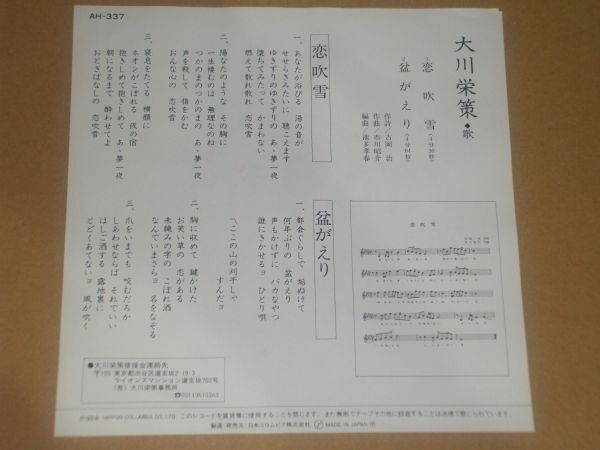 AH-337
大川栄策●歌
恋吹雪
盆がえり
作詩／吉岡 治
作曲／市川昭介
編曲／池多孝春
恋吹雪
一、あなたが浴びる 湯の音が
せせらぎみたいに 聴こえます
ゆきずりのゆきずりの あゝ夢一夜
堕ちてみたって かまわない
燃えて散れ散れ 恋吹雪
二、陽なたのような その胸に
一生棲むのは 無理なのね
つかのまのつかのまの あゝ夢一夜
声を殺して 指をかむ
おんな心の 恋吹雪
三、寝息をたてる 横顔に
ネオンがこぼれる 夜の宿
抱きしめて抱きしめて あゝ夢一夜
朝になるまで 酔わせてよ
おとぎばなしの 恋吹雪
盆がえり
一、都会ぐらしで 垢ぬけて
何年ぶりの 盆がえり
声もかけずに バカなやつ
誰にきかせるョ ひとり唄
〽ここの山の刈干しゃ
すんだョ
二、胸に収めて 鍵かけた
お笑い草の 恋がある
未練みの字の こぼれ酒
なんでいまさらョ 名をなぞる
三、爪をいまでも 咬むだろか
しあわせならば それでいい
はしご酒する 露地裏に
とどくあてないョ 風が吹く
恋吹雪
●大川栄策後援会連絡先
東京都渋谷区道玄坂2-19-3
ライオンズマンション道玄坂702号
(有) 大川栄策事務所
NIPPON COLUMBIA CO., LTD. このレコードを賃貸業に使用することを禁じます。また無断でテープその他に録音することは法律で禁じられています。
製造・発売元／日本コロムビア株式会社 MADE IN JAPAN